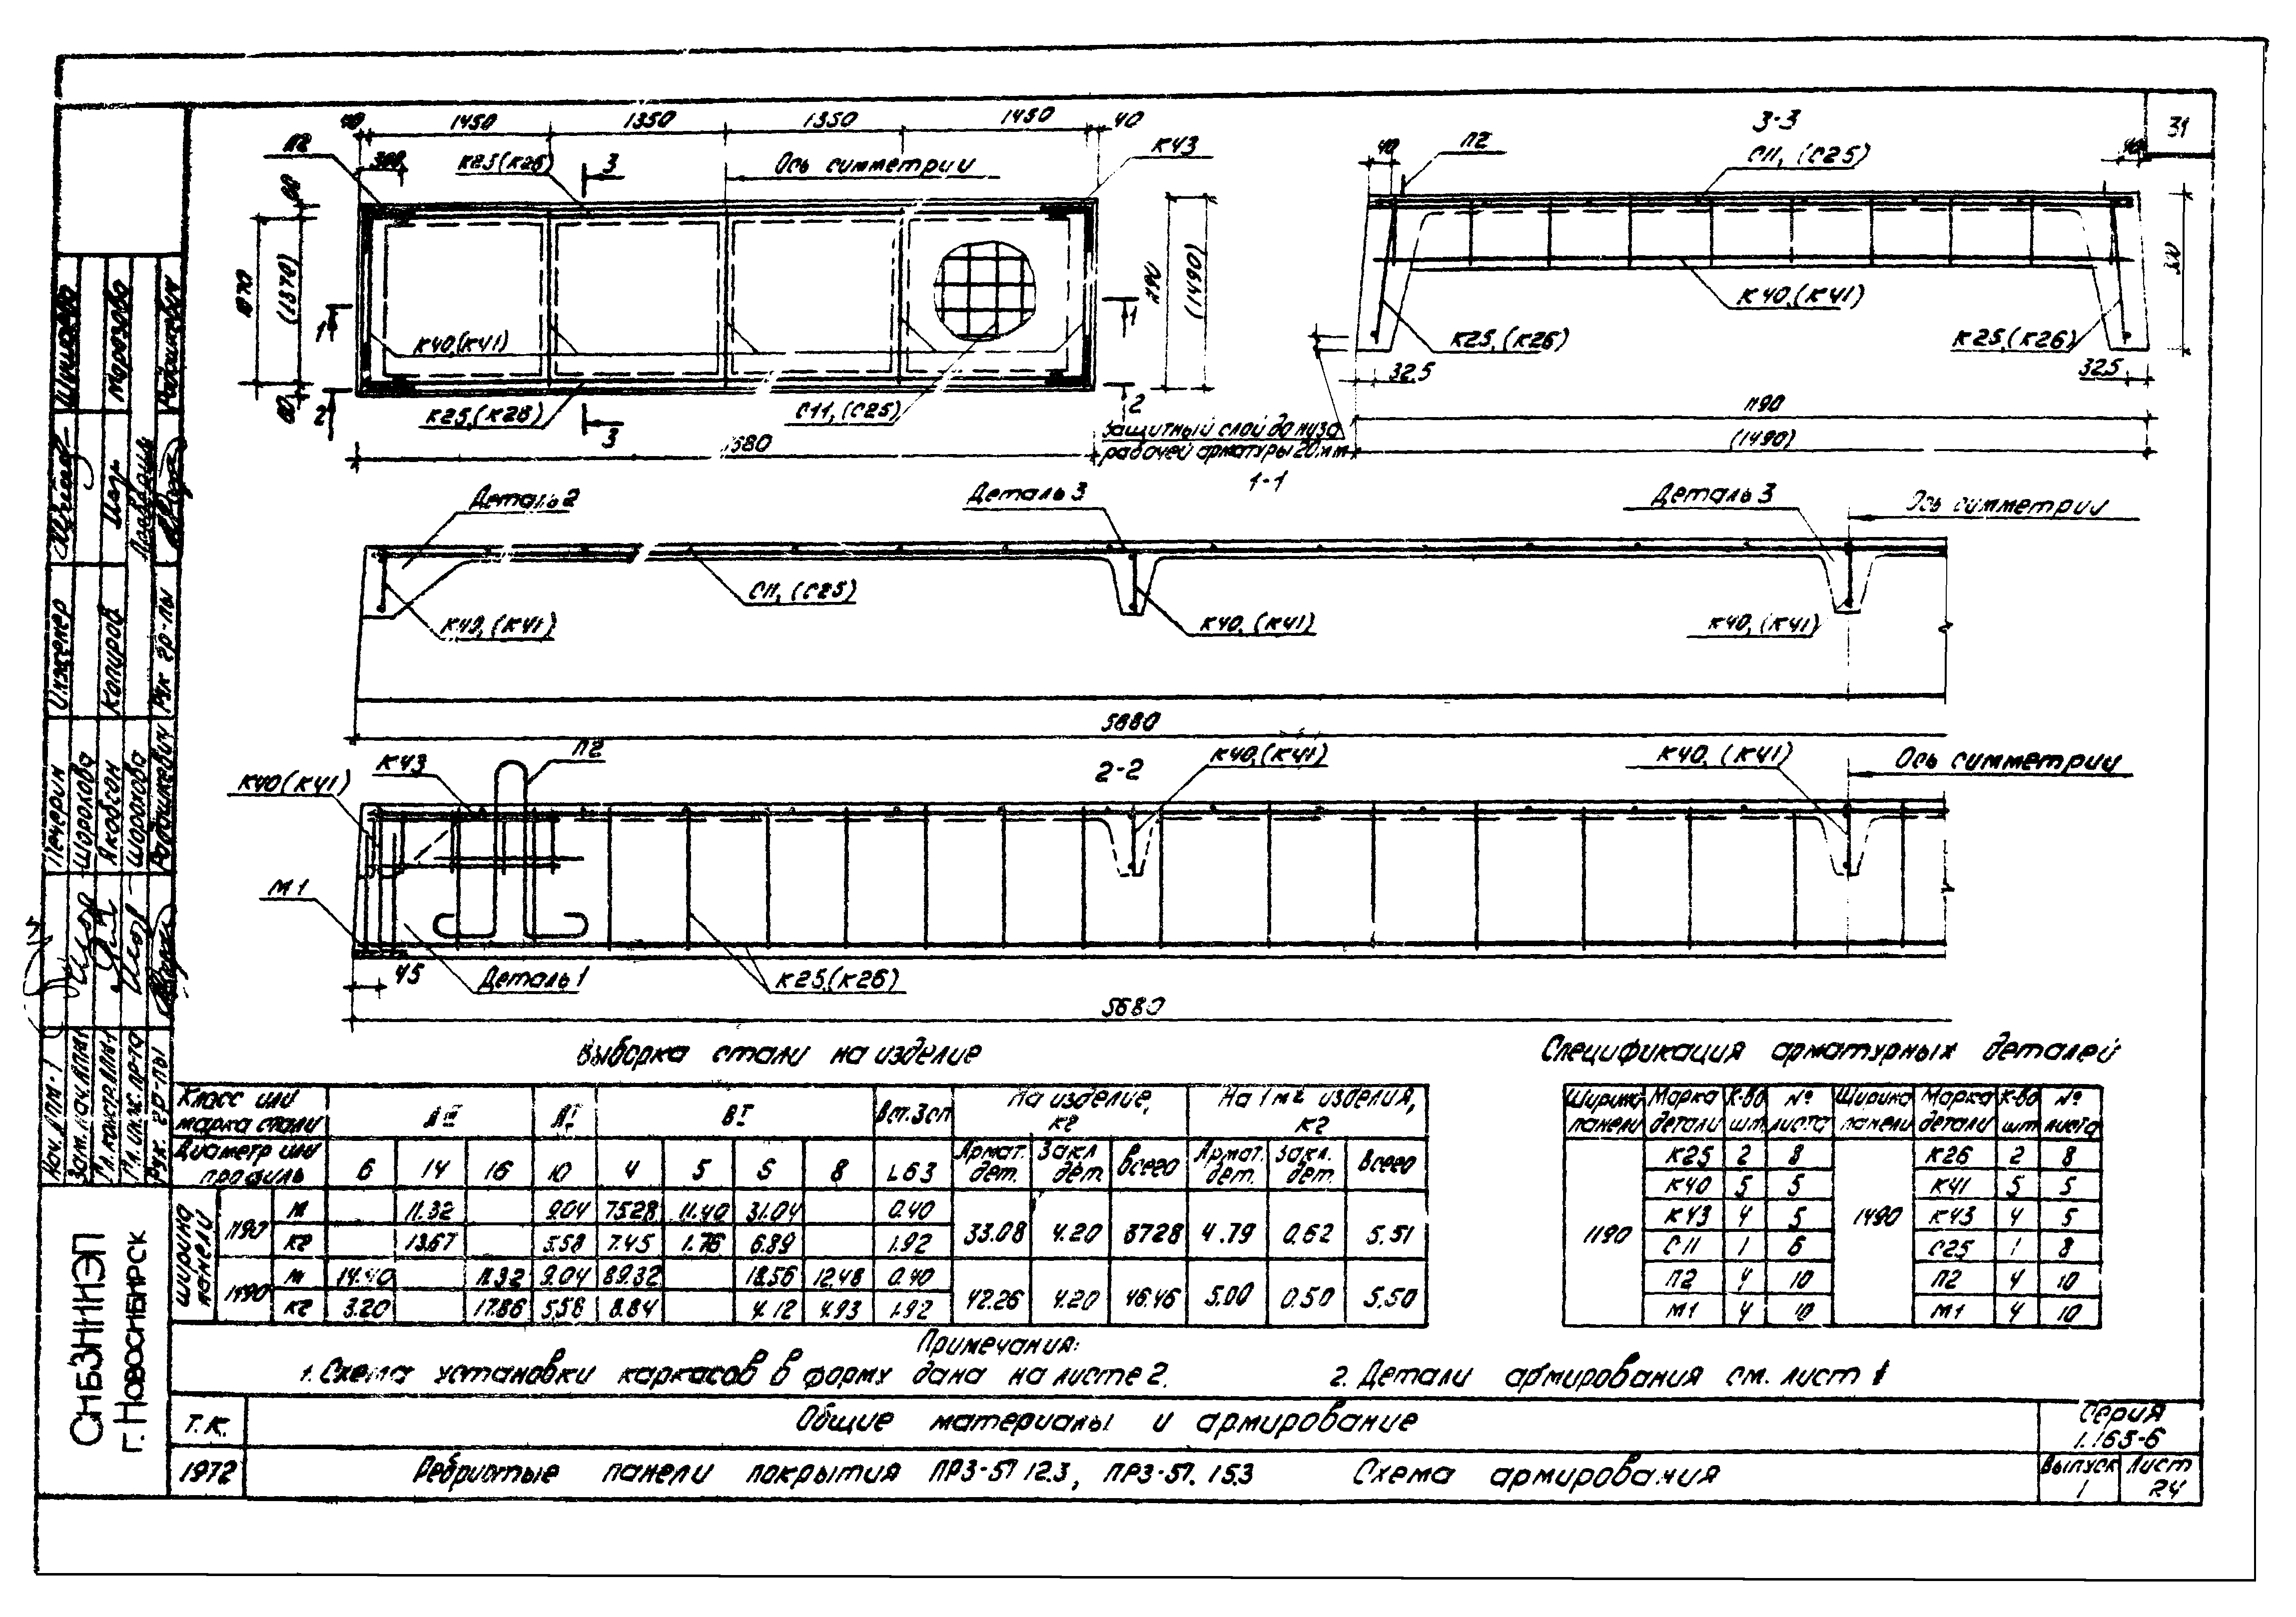 31
40 1450 1350 1350 1450 40
П2
300
К25(К26)
3
Ось симметрии
К43
60
1070
(1370)
60
1190
(1490)
1
1
К40,(К41)
2
2
К25,(К26)
3
С11,(С25)
5680
3-3
40
П2
С11, (С25)
40
300
К40,(К41)
К25,(К26)
К25,(К26)
32.5
32.5
1190
(1490)
Защитный слой до низа
рабочей арматуры 20мм
1-1
Деталь 2
Деталь 3
Деталь 3
Ось симметрии
С11, (С25)
К40, (К41)
К40, (К41)
К40, (К41)
5680
2-2
К40(К41)
К43
П2
К40,(К41)
К40, (К41)
Ось симметрии
М1
45
Деталь 1
К25,(К26)
5680
Выборка стали на изделие
Класс или марка стали АIII АI ВI Вст.3сп На изделие, кг На 1м2 изделия, кг
Диаметр или профиль 6 14 16 10 4 5 6 8 L63 Армат. дет. Закл дет. Всего Армат. дет. Закл. дет. Всего
Ширина панели
1190 м 11.32 9.04 75.28 11.40 31.04 0.40
кг 13.67 5.58 7.45 1.76 6.89 1.92
33.08 4.20 3728 4.79 0.62 5.51
1490 м 14.40 11.32 9.04 89.32 18.56 12.48 0.40
кг 3.20 17.86 5.58 8.84 4.12 4.93 1.92
42.26 4.20 46.46 5.00 0.50 5.50
Спецификация арматурных деталей
Ширина панели Марка детали К-во шт. № листа Ширина панели Марка детали К-во шт № листа
К25 2 8 К26 2 8
К40 5 5 К41 5 5
1190 К43 4 5 1490 К43 4 5
С11 1 6 С25 1 8
П2 4 10 П2 4 10
М1 4 10 М1 4 10
Примечания:
1. Схема установки каркасов в форму дана на листе 2.
2. Детали армирования см. лист 1
Т.К.
Общие материалы и армирование
Серия
1.165-6
1972
Ребристые панели покрытия ПР3-57.12.3, ПР3-57.15.3 Схема армирования
Выпуск
1
Лист
24
СИБЗНИИЭП
г. Новосибирск
Нач. АПМ-1 Печерин Инженер Шишова
Зам.нач.АПМ-1 Шоролова
Гл.констр.АПМ-1 Якобсон Копиров Морозова
Гл.инж.пр-та Шоролова
Рук. гр-пы Радашкевич Рук гр-пы Радашкевич